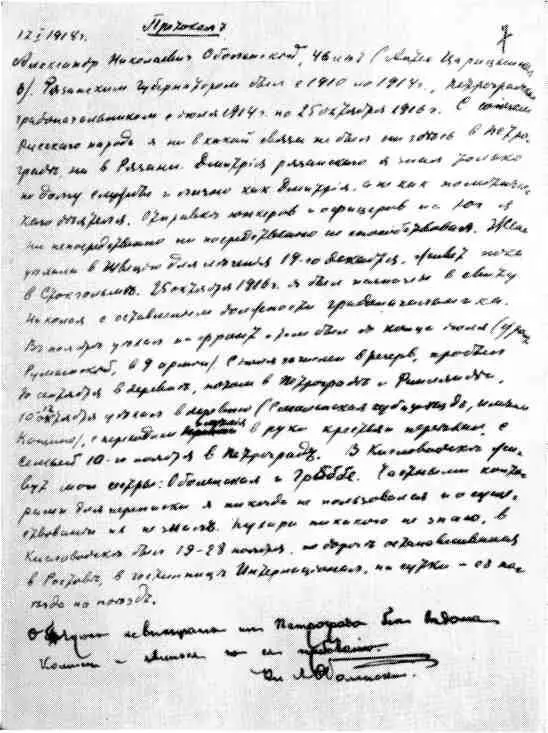 Протоколъ
12 I 1918 г.
Александр Николаевич Оболенский, 46 лет (
). Рязанским губернатором был с 1910 по 1914 г., Петроградским
градоначальником с июля 1914 г. по 25 октября 1916 г. С союзом
Русского народа я ни в какой связи не был ни здесь в Петро-
граде, ни в Рязани. Дмитрія рязанского я знал только
по долгу службы и лично как Дмитрія, а не как политиче-
ского деятеля. Отправке юнкеров и офицеров на юг я
ни непосредственно ни посредственно не способствовал. Жена
уехала в Швецию для лечения 19-го декабря. Живет пока
в Стокгольме. 25 октября 1916 г. я был назначен в свиту
Николая с оставлением должности градоначальника.
В ноябре уехал на фронт и там был до конца июля (
Румынской, в 9 армии). С июля зачислен в резерв, пробыл
до октября в деревне, потом в Петрограде и Финляндии.
10 октября уехал в деревню (Смоленская губ. уезд, имение
), с переходом имения в руки крестьян переехал с
семьей 10-го ноября в Петроград. В Кисловодске жи-
вут мои сестры: Оболенская и Граббе. Частными конвер-
тами для переписки я никогда не пользовался и о суще-
ствовании их не знал. никакого не знаю, в
Кисловодске был 19-28 ноября, по дороге останавливался
в Ростове, в гостинице Интернационал, на сутки – с по-
езда на поезд.
О невыезде из Петрограда без ведома
Комис – явиться по ея требованію.
Кн А Оболенский